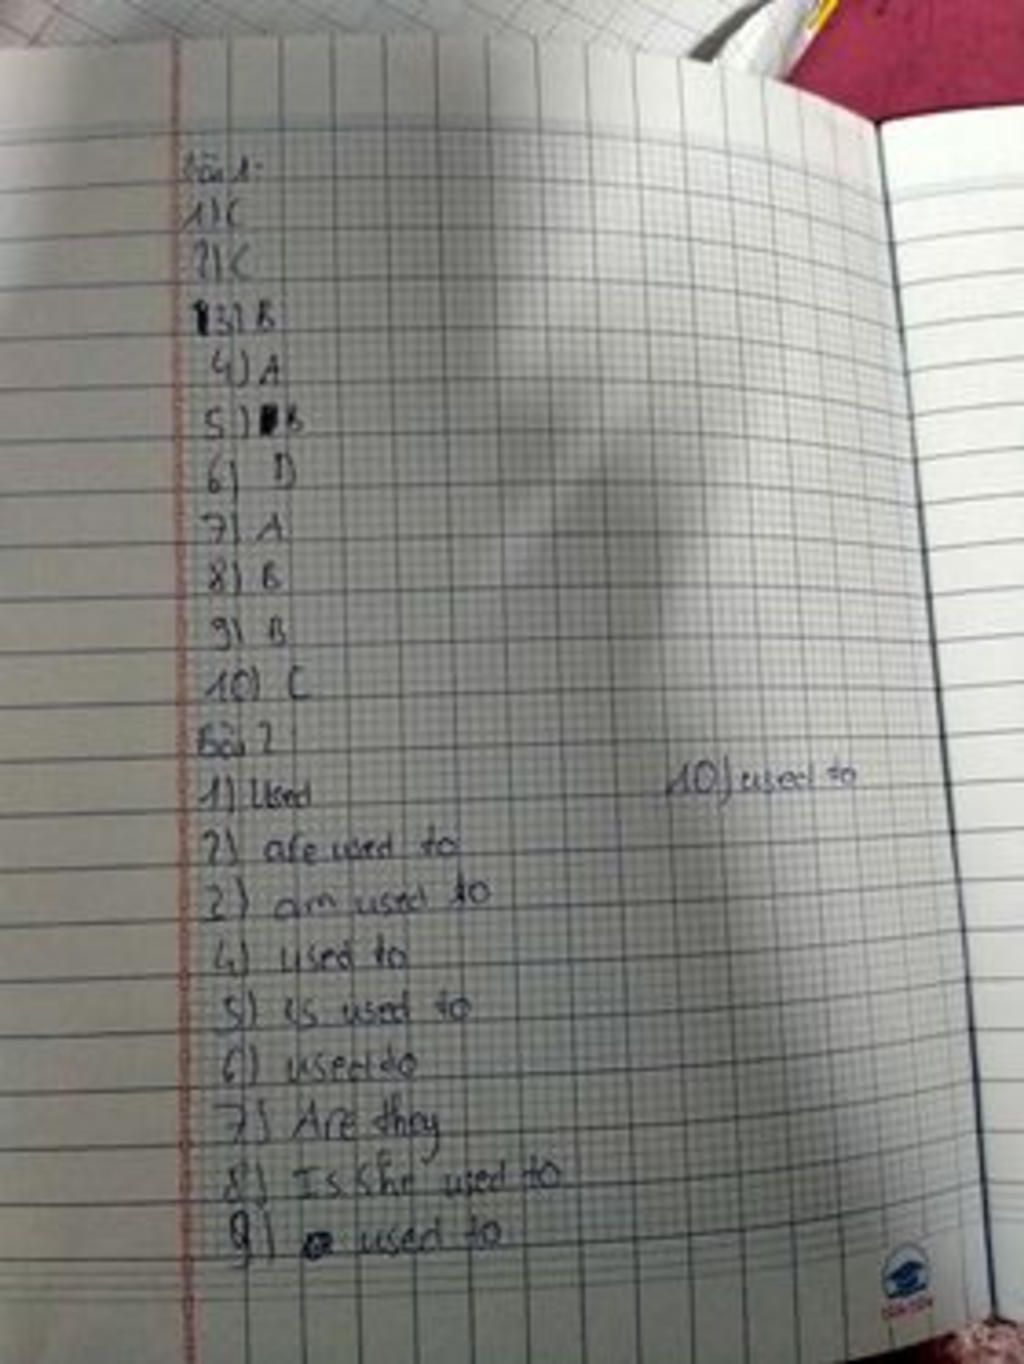 Bài 1:
1) C
2) C
3) B
4) A
5) B
6) D
7) A
8) B
9) B
10) C
Bài 2
1) Used
2) are used to
3) am used to
4) used to
5) is used to
6) used to
7) Are they
8) Is she used to
9) used to
10) used to